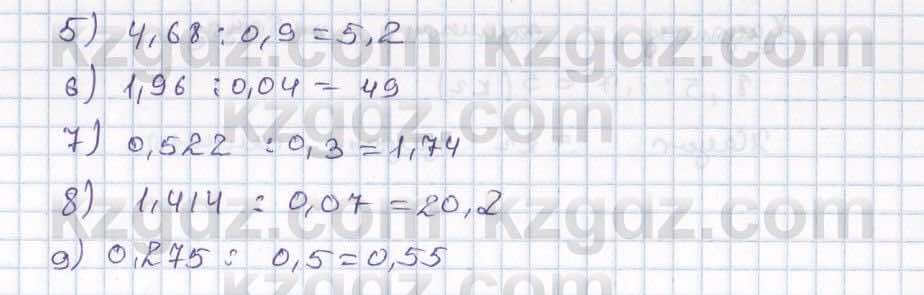 5) 4,68 : 0,9 = 5,2
6) 1,96 : 0,04 = 49
7) 0,522 : 0,3 = 1,74
8) 1,414 : 0,07 = 20,2
9) 0,275 : 0,5 = 0,55
kzgdz.com